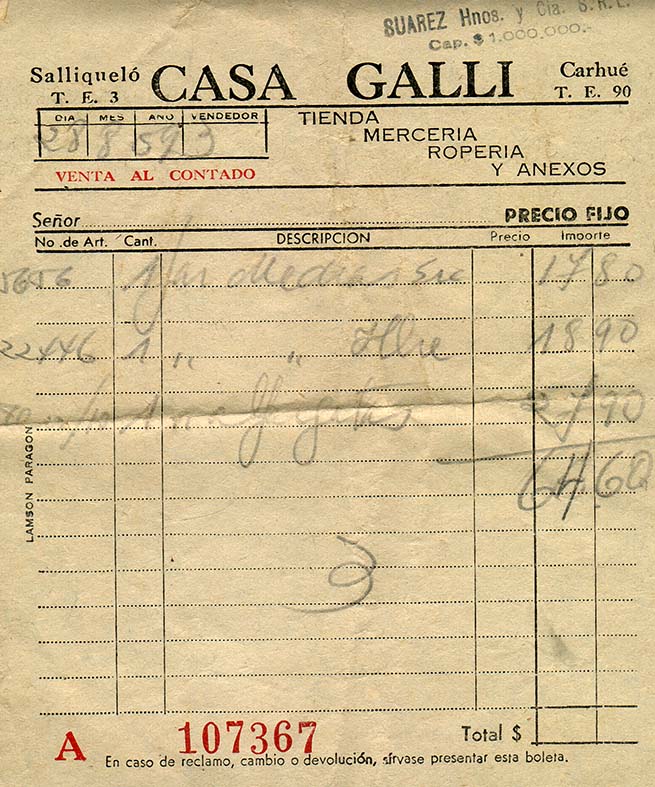 SUAREZ Hnos. y Cia. S.R.L.
Cap. $ 1.000.000.-
Salliqueló CASA GALLI Carhué
T. E. 3 T. E. 90
DIA MES AÑO VENDEDOR
28 8 59 3
TIENDA
MERCERIA
ROPERIA
Y ANEXOS
VENTA AL CONTADO
Señor PRECIO FIJO
No .de Art. Cant. DESCRIPCION Precio Importe
5656 1 par Medias Sra 17 80
22446 1 " " Hbre 18 90
1 " alpargatas 27 90
64.60
3
LAMSON PARAGON
Total $
A 107367
En caso de reclamo, cambio o devolución, sírvase presentar esta boleta.